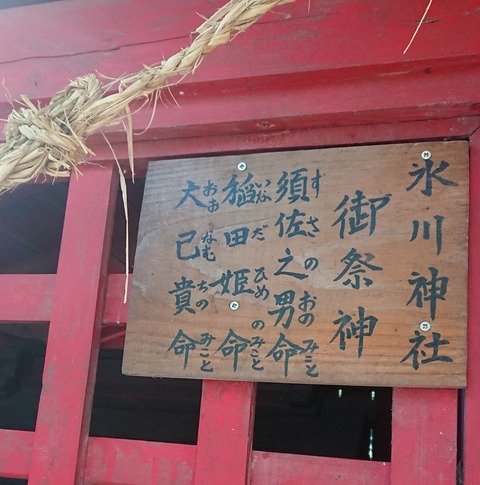 氷川神社
御祭神
須佐之男命
すさのおのみこと
稲田姫命
いなだひめのみこと
大己貴命
おおなむちのみこと